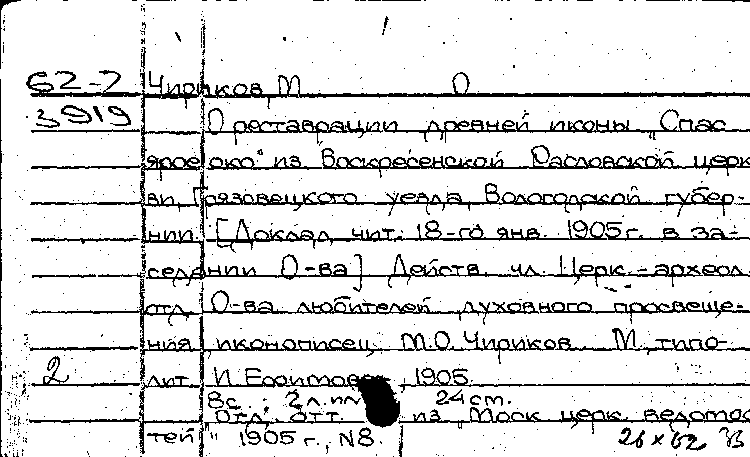 62-7 Чириков, М О
3919
О реставрации древней иконы „Спас
ярое око" из Воскресенской Расловской церк
ви, Грязовецкого уезда, Вологодской губер-
нии. [Доклад, чит. 18-го янв. 1905 г. в за-
седании О-ва] Действ. чл. Церк.-археол.
отд. О-ва любителей духовного просвеще-
ния, иконописец М.О. Чириков. М., типо-
2 лит. И. Ефимова, 1905.
8с. 2 л. илл 24 см.
Отд. отт. из „Моск. церк. ведомос
тей" 1905 г., N8.
26 x 62